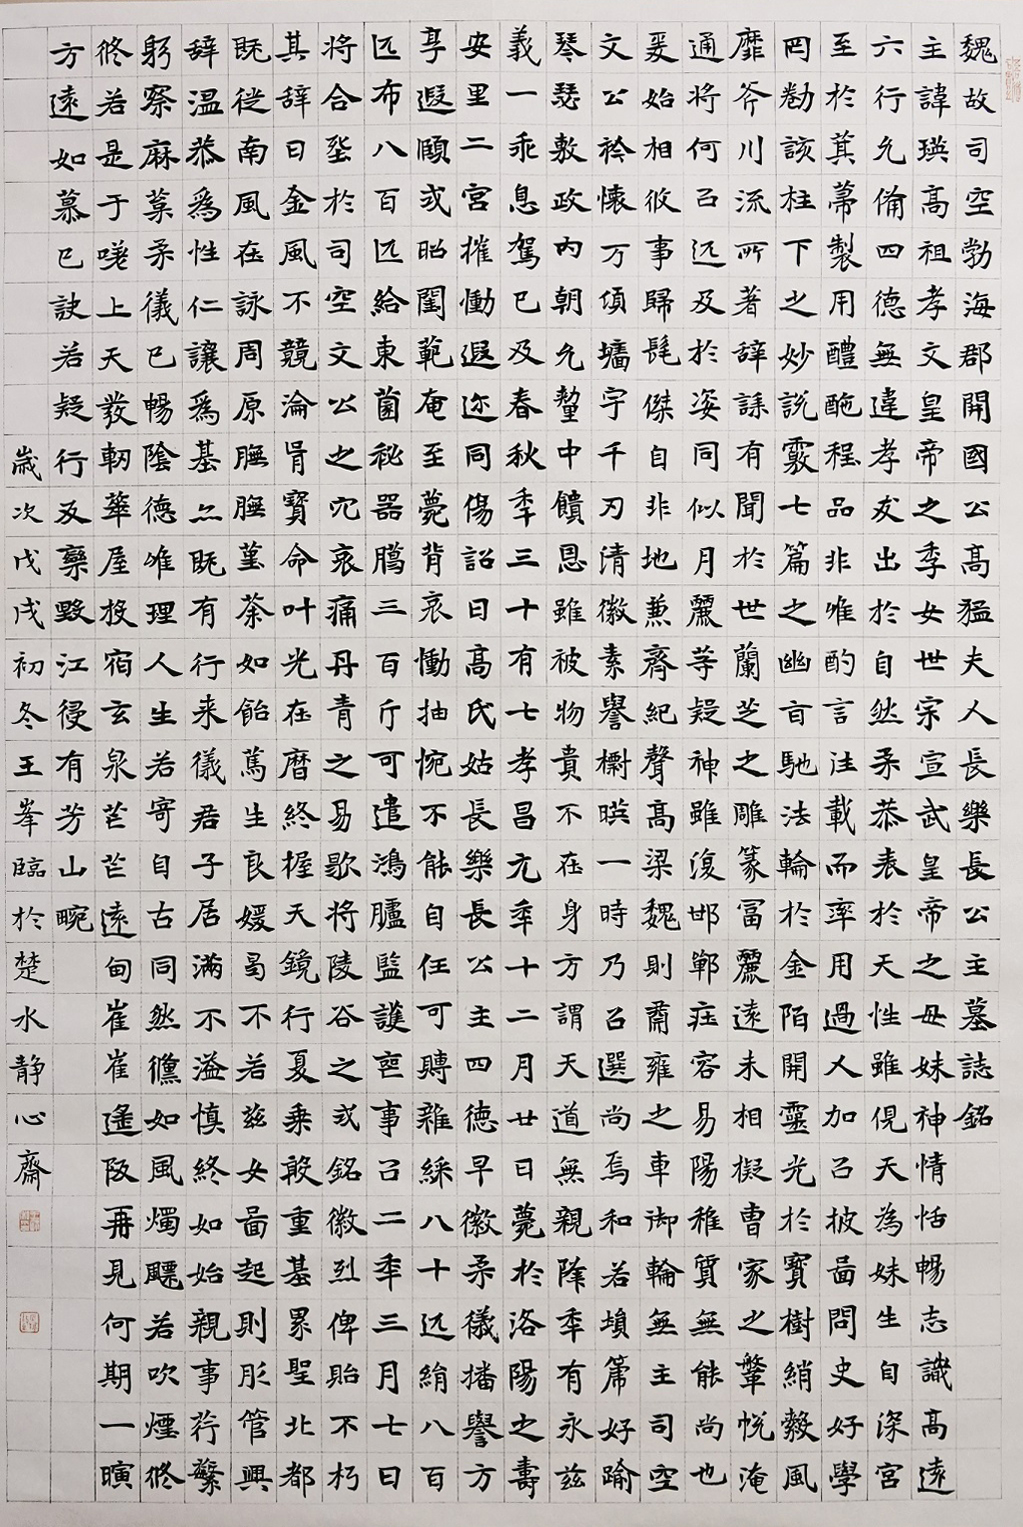 魏故司空勃海郡開國公髙猛夫人長樂長公主墓誌銘
主諱瑛高祖孝文皇帝之季女世宗宣武皇帝之母妹神情恬暢志識高遠
六行允俻四德無違孝友出於自然柔恭表於天性雖俔天為妹生自深宮
至於萁箒製用醴酏程品非唯酌言注載而率用過人加㠯披啚問史好學
罔勌該柱下之妙説覈七篇之幽旨馳法輪於金陌開靈光於寳樹綃縠風
靡斧川流所著辞誄有聞於世蘭芝之雕篆冨麗遠未相擬曹家之鞶帨淹
通將何㠯远及於姿同似月麗等疑神雖復邯鄲莊容易陽稚質無能尚也
爰始相攸事歸髦傑自非地兼齊紀聲高梁魏則肅雍之車御輪無主司空
文公衿懷万頃墻宇千刃清徽素譽㰚暎一時乃㠯選尚焉和若塤箎好踰
琴瑟敷政內朝允釐中饋恩雖被物貴不在身方謂天道無親降年有永兹
義一乖息駕已及春秋季三十有七孝昌元年十二月廿日薨於洛陽之壽
安里二宮摧慟遐迩同傷詔曰高氏姑長樂長公主四德早徽柔儀播譽方
享遐頤或昭閨範奄至薨背哀慟抽惋不能自任可賻雜綵八十远絹八百
匹布八百匹給東薗祕器臈三百斤可遣鴻臚監護喪事㠯二年三月七日
將合㘸於司空文公之穴哀痛丹青之易歇將陵谷之或銘徽烈俾貽不朽
其辞曰金風不競淪胥寳命叶光在曆終握天鏡行夏乗殷重基累聖北都
既從南風在詠周原膴膴堇荼如飴篤生良媛曷不若兹女啚起則彤管興
辞溫恭爲性仁讓爲基亦既有行来儀君子居滿不溢慎終如始親事荇蘩
躬察麻葈柔儀已暢陰德唯理人生若寄自古同然儵如風燭飃若吹煙俻
俻若是于嗟上天發軔華屋投宿玄泉芒芒遠甸崔崔遥阪再見何期一暝
方遠如慕已訣若疑行及藥毀江㝷有芳山畹
歳次戊戌初冬王峯臨於楚水静心齋